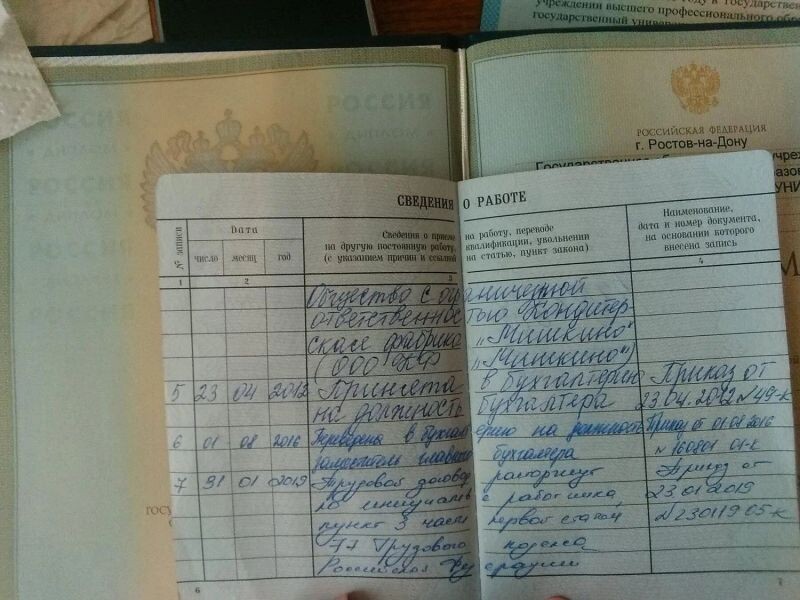 году в государстве
учреждении высшего профессионального обра
государственный универ
РОССИЯ
РОССИЙСКАЯ ФЕДЕРАЦИЯ
г. Ростов-на-Дону
СВЕДЕНИЯ О РАБОТЕ
№ записи
Дата
число месяц год
Сведения о приеме на работу, переводе
на другую постоянную работу, квалификации, увольнении
(с указанием причин и ссылкой на статью, пункт закона)
Наименование,
дата и номер документа,
на основании которого
внесена запись
1 2 3 4
Общество с ограниченной
ответственностью Кондитер-
ская фабрика „Мишкино"
(ООО КФ „Мишкино")
5 23 04 2012 Принята в бухгалтерию Приказ от
на должность бухгалтера 23.04.2012 N 49-К
6 01 08 2016 Переведена в бухгалтерию на должность Приказ от 01 08 2016
заместитель главного бухгалтера N 160801 01-К
7 31 01 2019 Трудовой договор расторгнут Приказ от
по инициативе работника, 23 01 2019
пункт 3 части первой статьи N 230119 05-К
77 Трудового кодекса
Российской Федерации
6
7